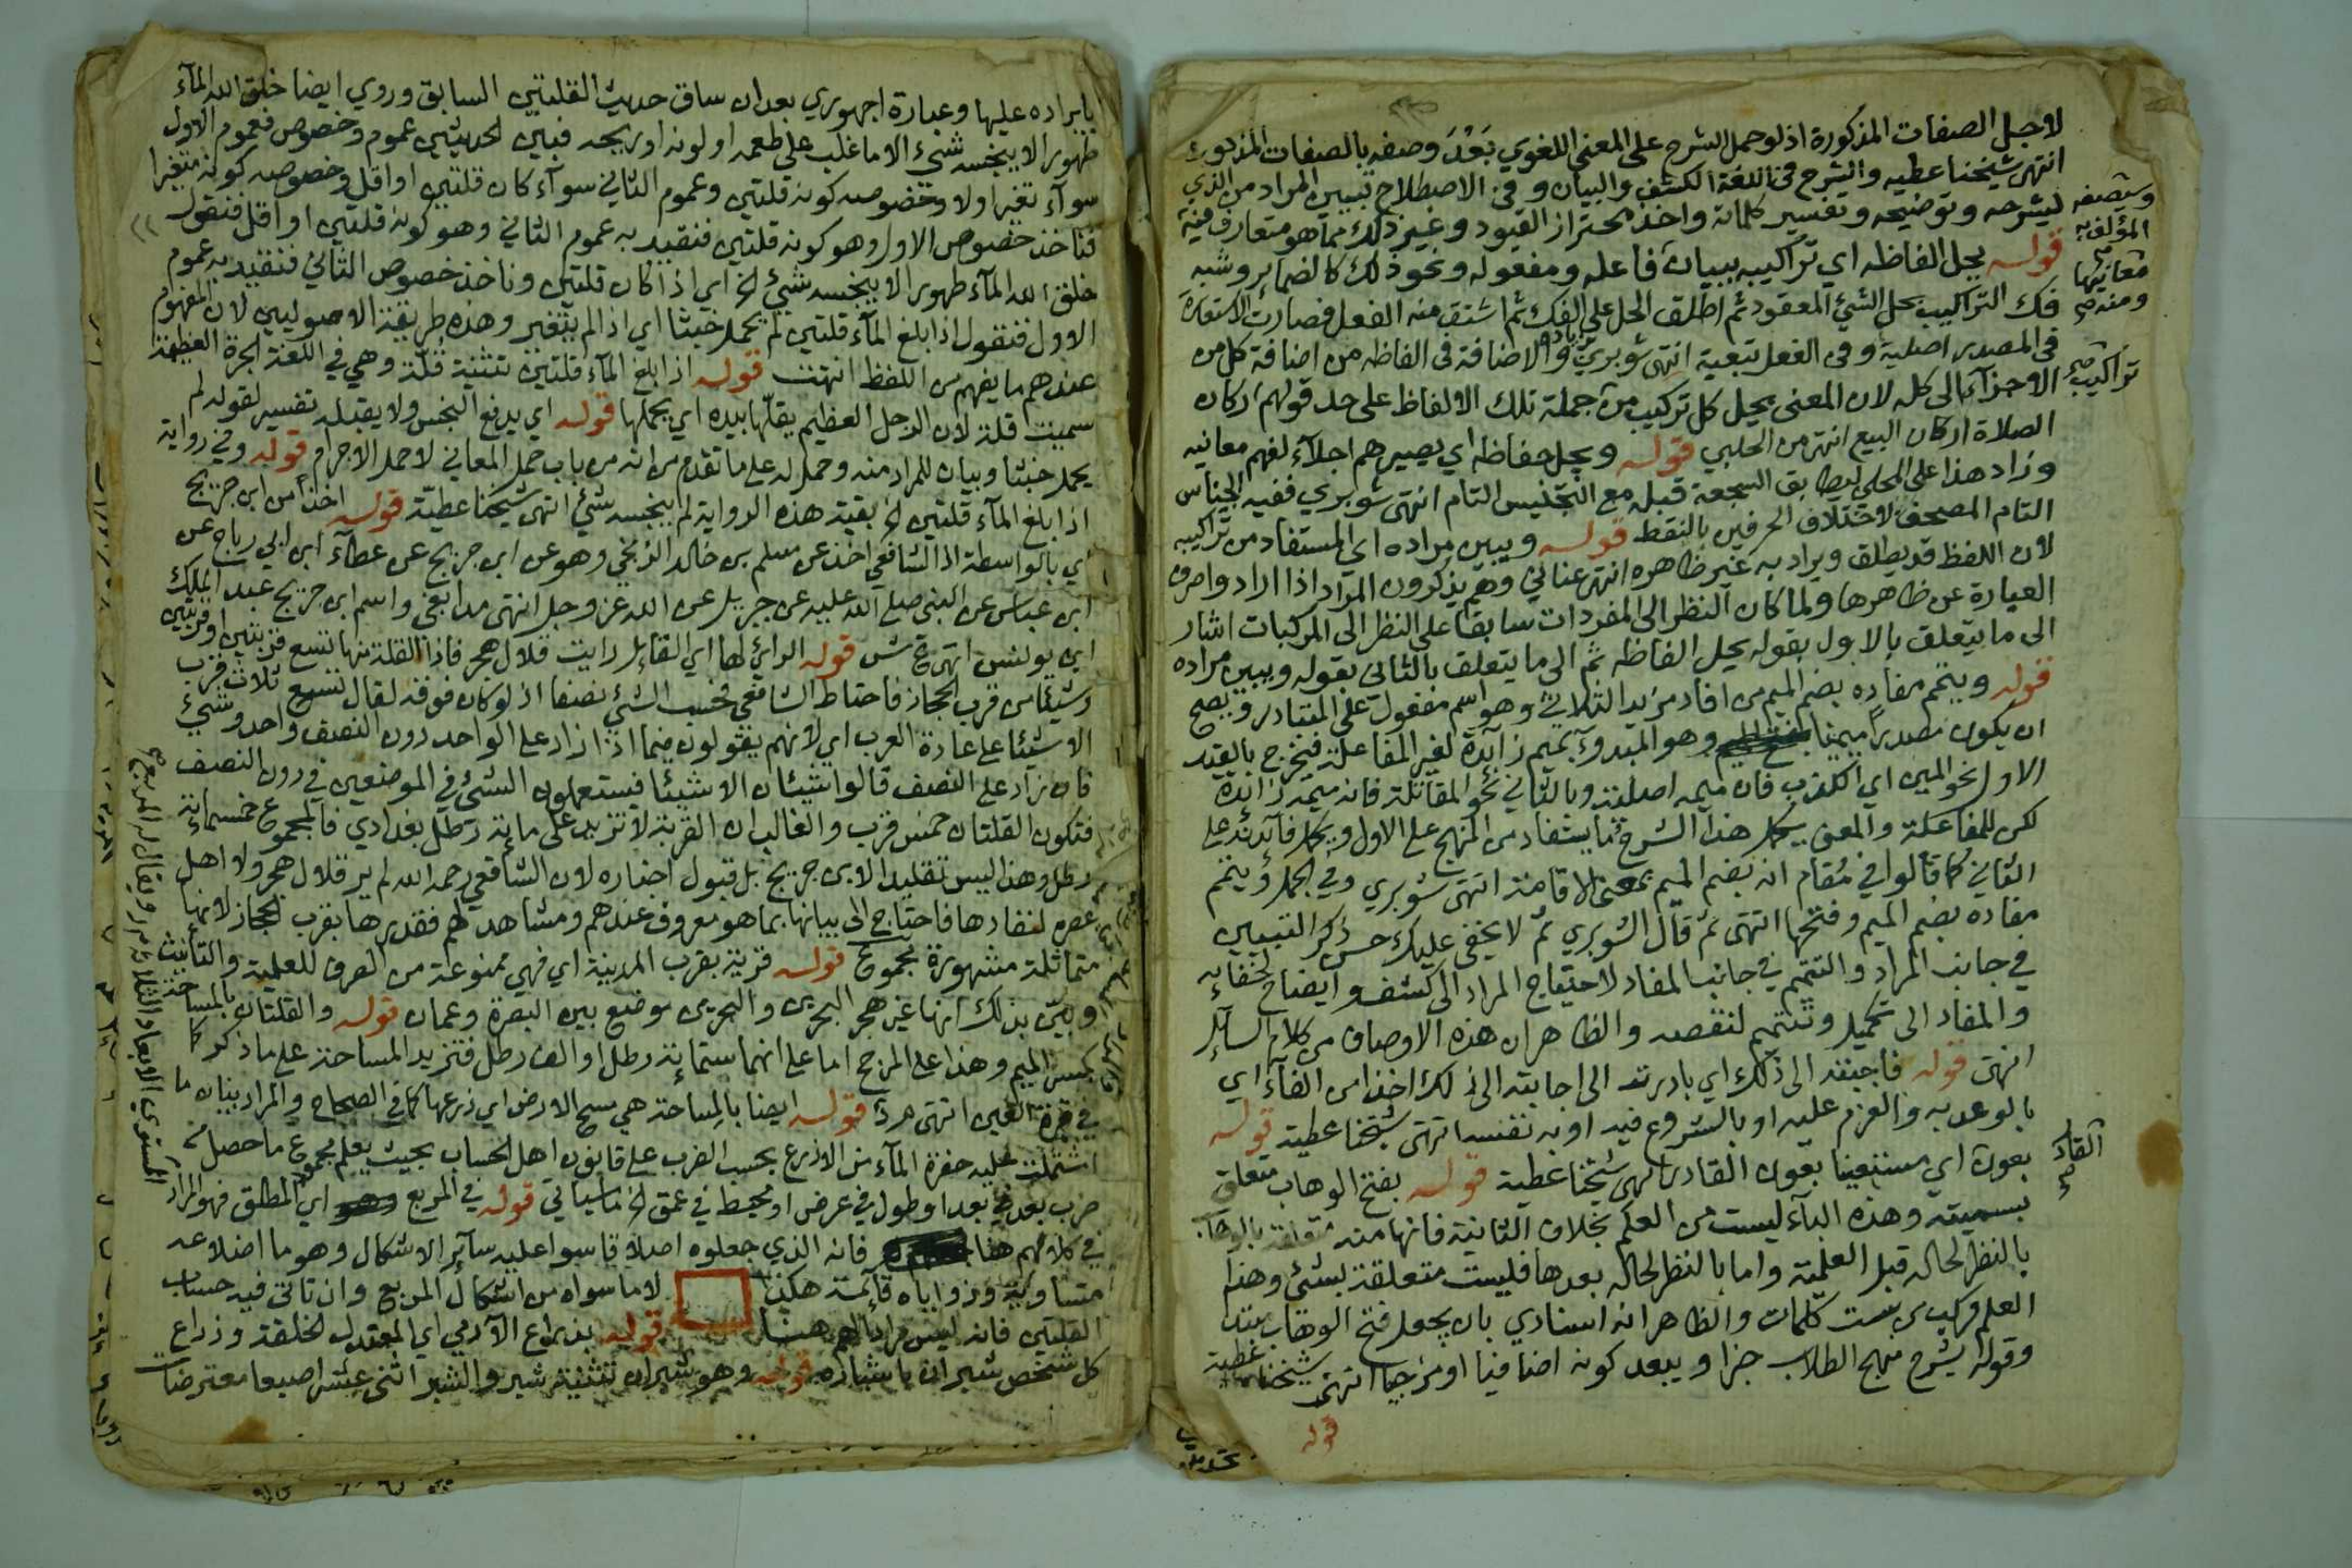 لاجل الصفات المذكورة اذ لو حمل الشرح على المعنى اللغوي بَعُدَ وصفه بالصفات المذكورة
انتهى شيخنا عطيه والشرح في اللغة الكشف والبيان وفي الاصطلاح تبيين المراد من الذي
ليشرحه وتوضيحه وتفسير كلماته واخذ محتراز القيود وغير ذلك مما هو متعارف فيه
قوله يحل الفاظه اي تراكيبه ببيان فاعله ومفعوله ونحو ذلك كالضماير وشبه
فك التراكيب بحل الشيئ المعقود ثم اطلق الحل على الفك ثم اشتق منه الفعل فصارت الاستعارة
في المصدر اصلية وفي الفعل تبعية انتهى شوبري والاضافة في الفاظه من اضافة كل من
الاجزآء الى كله لان المعنى يحل كل تركيب من جملة تلك الالفاظ على حد قولهم اركان
الصلاة اركان البيع انتهى من الحلبي قوله ويجل حفاظه اي يصيرهم اجلآء لفهم معانيه
وزاد هذا على المحلي ليطابق السجعة قبله مع التجنيس التام انتهى شوبري ففيه الجناس
التام المصحف لاختلاف الحرفين بالنقط قوله ويبين مراده اي المستفاد من تراكيبه
لان اللفظ قد يطلق ويراد به غير ظاهره انتهى عناني وهم يذكرون المراد اذا ارادوا صرف
العبارة عن ظاهرها ولما كان النظر الى المفردات سابقا على النظر الى المركبات اشار
الى ما يتعلق بالاول بقوله يحل الفاظه ثم الى ما يتعلق بالثاني بقوله ويبين مراده
قوله ويتمم مفاده بضم الميم من افاد مزيد الثلاثي وهو اسم مفعول على المتبادر ويصح
ان يكون مصدرًا ميميا وهو المبدوء بميم زايدة لغير المفاعلة فيخرج بالقيد
الاول نحو المين اي الكذب فان ميمه اصلية وبالثاني نحو المقاتلة فانه ميمه زايدة
لكن للمفاعلة والمعنى يكمل هذا الشرح ما يستفاد من المنهج على الاول ويكمل فائدته على
الثاني كما قالوا في مُقام انه بضم الميم بمعنى الاقامة انتهى شوبري وفي الجمل ويتمم
مفاده بضم الميم وفتحها انتهى ثم قال الشوبري ثم لا يخفى عليك حسن ذكر التبيين
في جانب المراد والتتميم في جانب المفاد لاحتياج المراد الى كشف وايضاح لخفايه
والمفاد الى تكميل وتتميم لنقصه والظاهر ان هذه الاوصاف من كلام السايل
انتهى قوله فاجبته الى ذلك اي بادرته الى اجابته الى ذلك اخذا من الفآء اي
بالوعد به والعزم عليه او بالشروع فيه او به نفسه انتهى شيخنا عطية قوله
بعون اي مستعينا بعون القادر انتهى شيخنا عطية قوله بفتح الوهاب متعلق
بسميته وهذه البآء ليست من العلم بخلاف الثانية فانها منه
بالنظر لحاله قبل العلمية واما بالنظر لحاله بعدها فليست متعلقة بشيئ وهذا
العلم مركب من ست كلمات والظاهر انه اسنادي بان يجعل فتح الوهاب مبتدا
وقوله بشرح منهج الطلاب خبرا ويبعد كونه اضافيا او مزجيا انتهى شيخنا عطية
قوله
وتصنعه
المؤلف به
معانيها
ومنه صح
تراكيب صح
القادر
صح
بايراده عليها وعبارة اجهوري بعد ان ساق حديث القلتين السابق وروي ايضا خلق الله المآء
طهورا لا ينجسه شيئ الا ما غلب على طعمه او لونه او ريحه فبين الحديثين عموم وخصوص فعموم الاول
سوآء تغير اولا وخصوصه كونه قلتين وعموم الثاني سوآء كان قلتين او اقل وخصوصه كونه متغيرا
فناخذ خصوص الاول وهو كونه قلتين فنقيد به عموم الثاني وهو كونه قلتين او اقل فنقول
خلق الله المآء طهورا لا ينجسه شيئ الخ اي اذا كان قلتين وناخذ خصوص الثاني فنقيد به عموم
الاول فنقول اذا بلغ المآء قلتين لم يحمل خبثا اي اذا لم يتغير وهذه طريقة الاصوليين لان المفهوم
عندهم ما يفهم من اللفظ انتهت قوله اذا بلغ المآء قلتين تثنية قلّة وهي في اللغة الجرة العظيمة
سميت قلة لان الرجل العظيم يقلّها بيده اي يحملها قوله اي يدفع النجس ولا يقبله تفسير لقوله لم
يحمل خبثا وبيان للمراد منه وحمل له على ما تقدم من انه من باب حمل المعاني لا حمل الاجرام قوله وفي رواية
اذا بلغ المآء قلتين الخ بقية هذه الرواية لم ينجسه شيئ انتهى شيخنا عطيّة قوله اخذا من ابن جريج
اي بالواسطة اذ الشافعي اخذ عن مسلم بن خالد الزنجي وهو عن ابن جريج عن عطآء ابن ابي رباح عن
ابن عباس عن النبي صلى الله عليه عن جبريل عن الله عز وجل انتهى مدابغي واسم ابن جريج عبد الملك
ابن يونس انتهى ع ش قوله الرائي لها اي القائل رايت قلال هجر فاذا القلة منها تسع قربتين او قربتين
وشيئا من قرب الحجاز فاحتاط الشافعي فحسب الشيئ نصفا اذ لو كان فوقه لقال تسع ثلاث قرب
الا شيئا على عادة العرب اي لانهم يقولون فيما اذا زاد على الواحد دون النصف واحد وشيئ
فان زاد على النصف قالوا شيئان الا شيئا فيستعملون الشيئ في الموضعين في دون النصف
فتكون القلتان خمس قرب والغالب ان القربة لا تزيد على ماية رطل بغدادي فالمجموع خمسماية
رطل وهذا ليس تقليدا لابن جريج بل قبول اخباره لان الشافعي رحمه الله لم ير قلال هجر ولا اهل
عصره لنفادها فاحتاج الى بيانها بما هو معروف عندهم ومشاهد لهم فقدرها بقرب الحجاز لانها
متماثلة مشهورة مجموع قوله قرية بقرب المدينة اي فهي ممنوعة من الصرف للعلمية والتأنيث
وبيّن بذلك انها غير هجر البحرين والبحرين موضع بين البصرة وعمان قوله والقلتان بالمساحة
بكسر الميم وهذا على المرجح اما على انهما ستماية رطل او الف رطل فتزيد المساحة على ما ذكر كما
في قرة العين انتهى م ر قوله ايضا بالمساحة هي مسح الارض اي ذرعها كما في الصحاح والمراد بيان ما
اشتملت عليه حفرة المآء من الاذرع بحسب الضرب على قانون اهل الحساب بحيث يعلم مجموع ما حصل منه
ضرب بعد في بعد او طول في عرض او محيط في عمق الخ ما سياتي قوله في المربع اي المطلق فهو المراد
في كلامهم هنا فانه الذي جعلوه اصلا قاسوا عليه سآير الاشكال وهو ما اضلاعه
متساوية وزواياه قائمة هكذا لا ما سواه من اشكال المربع وان تاتى فيه حساب
القلتين فانه ليس مرادا لهم هنا قوله بذراع الآدمي اي المعتدل الخلقة وذراع
كل شخص شبران باشباره قوله وهو شبران تثنية شبر والشبر اثنى عشر اصبعا معترضات